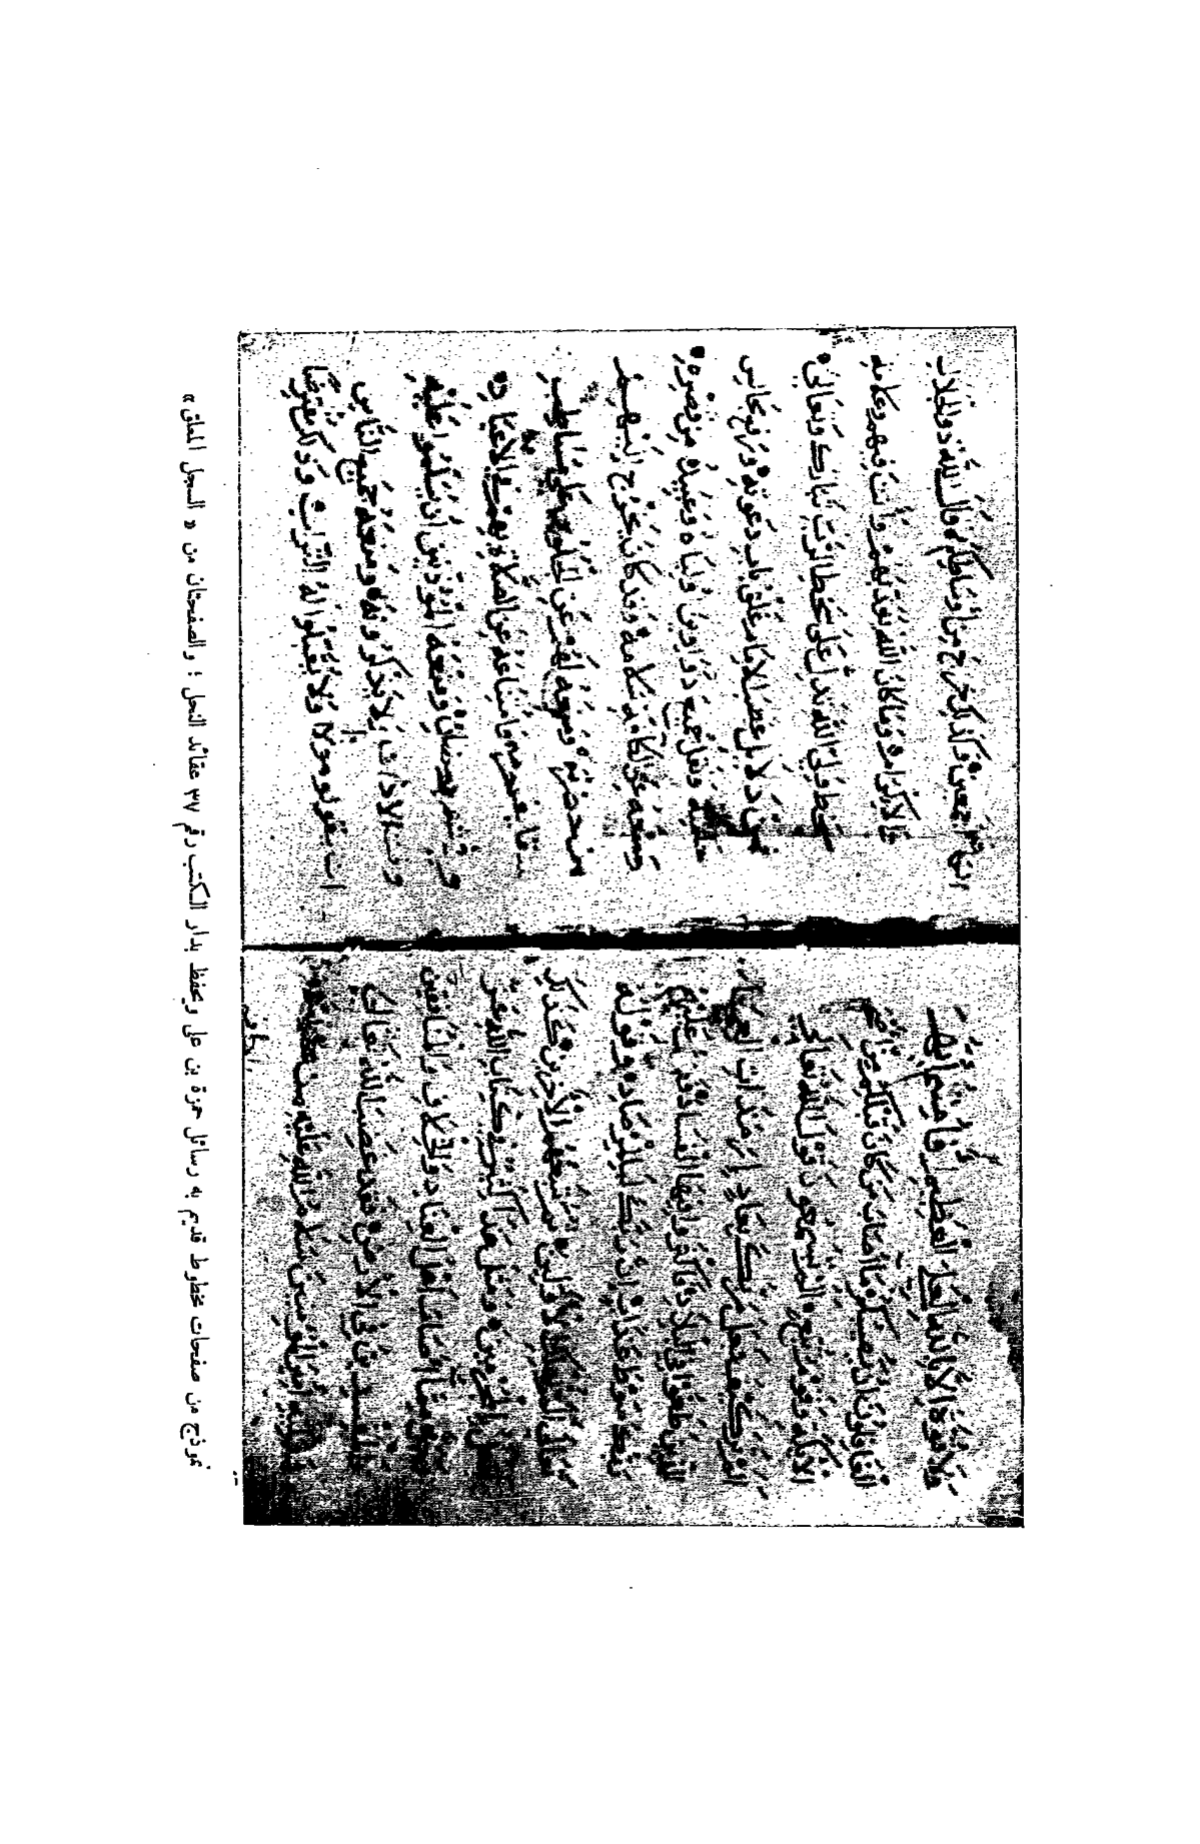 العلي العظيم
الغافلون ان يصيبكم ما اصاب من كان قبلكم من اصحاب
الايكة وقوم تبع الم تسمعوا قول الله تعالى
الم تر كيف فعل ربك بعاد ارم ذات العماد
الذين طغوا في البلاد فاكثروا فيها الفساد فصب عليهم
ربك سوط عذاب ان ربك لبالمرصاد وقوله
تعالى الم نهلك الاولين ثم نتبعهم الاخرين كذلك
نفعل بالمجرمين ومثل هذا كثير في كتاب الله عز
اهل الفساد والخلاف والمنافقين
في الارض فقد غضب الله تعالى
ووليه امير المؤمنين سلام الله عليه من عظم
انتم اجمعين ولذلك خرج من اوساطكم قال الله ذو الجلال
والاكرام وما كان الله ليعذبهم وانت فيهم وعلامة
سخط ولي الله تدل على سخط الرب تبارك وتعالى
فمن دلايل غضب الامام غلق باب دعوته ورفع مجالس
حكمته ونقل جميع دواوين اوليائه وعبيده من قصره
ومنعه عن الكافة سلامه وقد كان يخرج اليهم
من حضرته ومنعه لهم عن الجلوس على مساطب
سقايف حرمه وامتناعه عن الصلاة بهم في الاعياد
وفي شهر رمضان ومنعه المؤذنين ان يسلموا عليه
وقت الاذان ولا يذكرونه ومنعه جميع الناس
ان يقولوا مولانا ولا يقبلوا له التراب وذلك مفترضا
نموذج من صفحات مخطوط قديم به رسائل حمزة بن على ويحفظ بدار الكتب رقم ٣٧ عقائد النحل ؛ والصفحتان من « السجل المعلق »